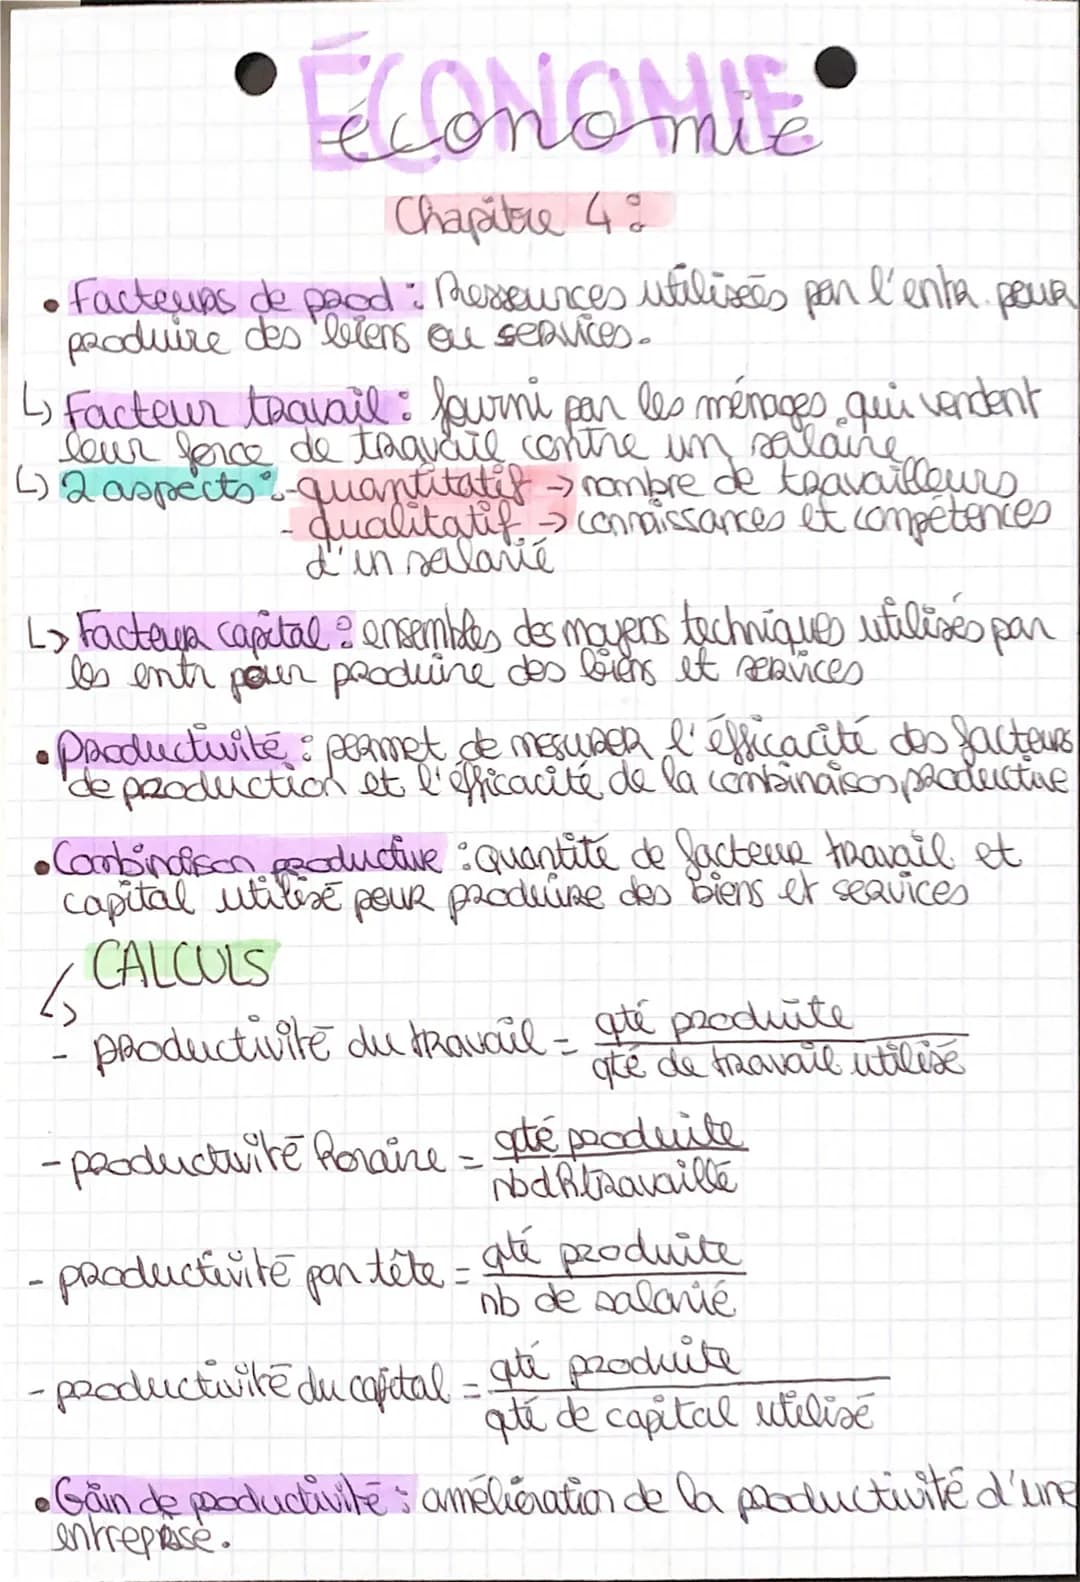 ÉCONOMIE
économie
Chapitre 4 :
• Facteurs de prod : Ressources utilisées par l'entr. pour
produire des biens ou services.
↳ Facteur travail : fourni par les ménages qui vendent
leur force de travail contre un salaire
↳ 2 aspects : - quantitatif → nombre de travailleurs
- qualitatif → connaissances et compétences
d'un salarié
↳ Facteur capital : ensembles des moyens techniques utilisés par
les entr pour produire des biens et services
• Productivité : permet de mesurer l'éfficacité des facteurs
de production et l'éfficacité de la combinaison productive
• Combinaison productive : quantité de facteur travail et
capital utilisé pour produire des biens et services
CALCULS
↳
- productivité du travail = qté produite
qté de travail utilisé
- productivité horaire = qté produite
nb d h travaillé
- productivité par tête = qté produite
nb de salarié
- productivité du capital = qté produite
qté de capital utilisé
• Gain de productivité : amélioration de la productivité d'une
entreprise.